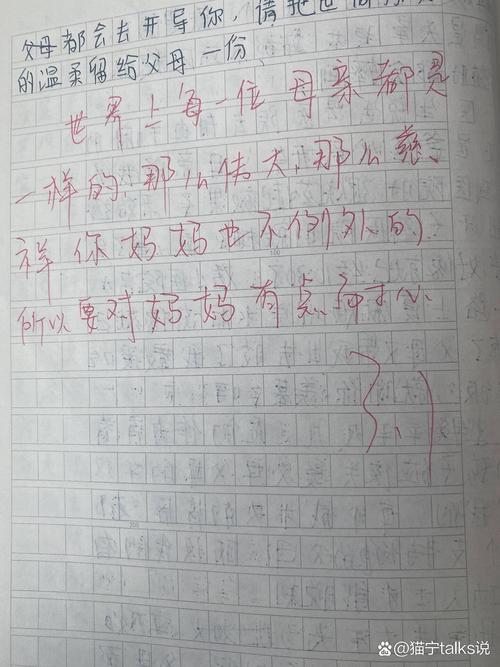 父母都会去开导你,请把世间
的温柔留给父母一份、
世界上每一位母亲都是
一样的,那么伟大,那么慈
祥你妈妈也不例外的
所以要对妈妈有点耐心
@猫宁talks说